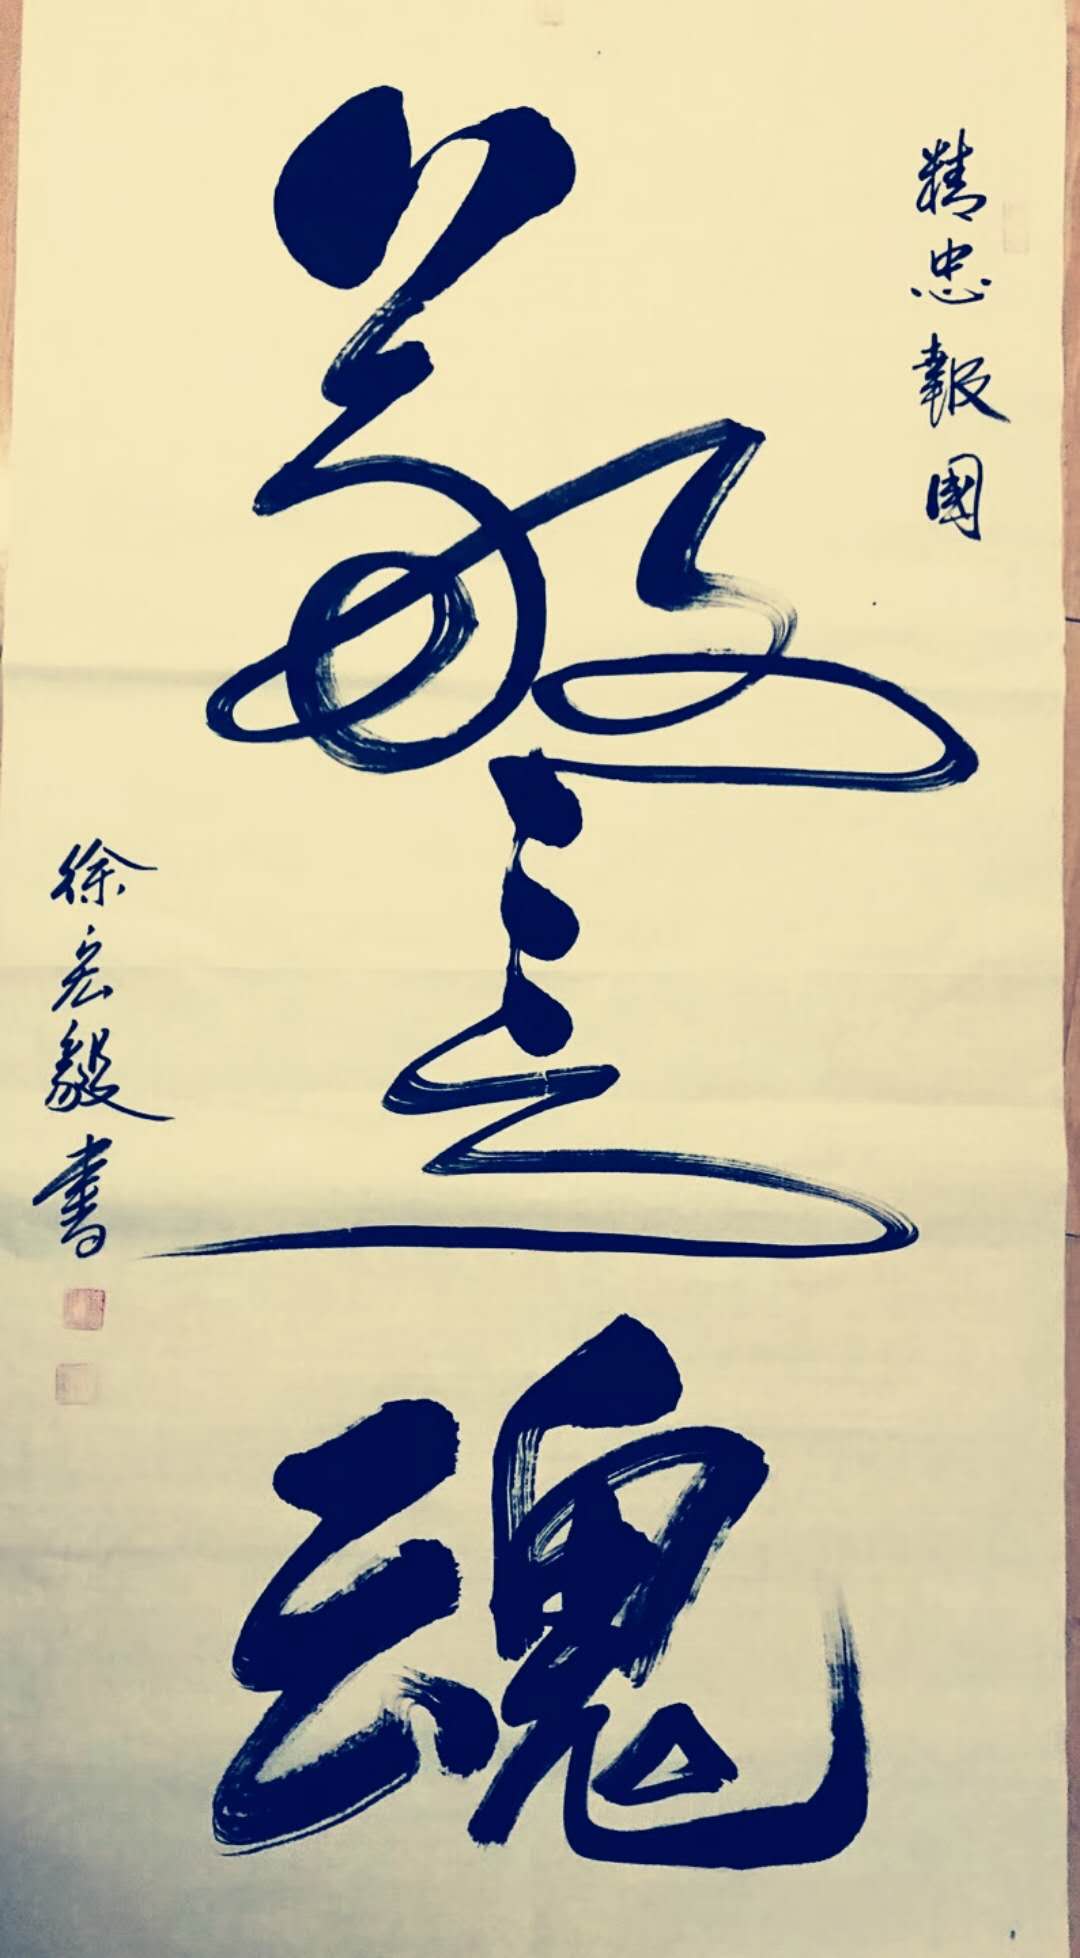 精忠報國
警魂
徐宏毅書